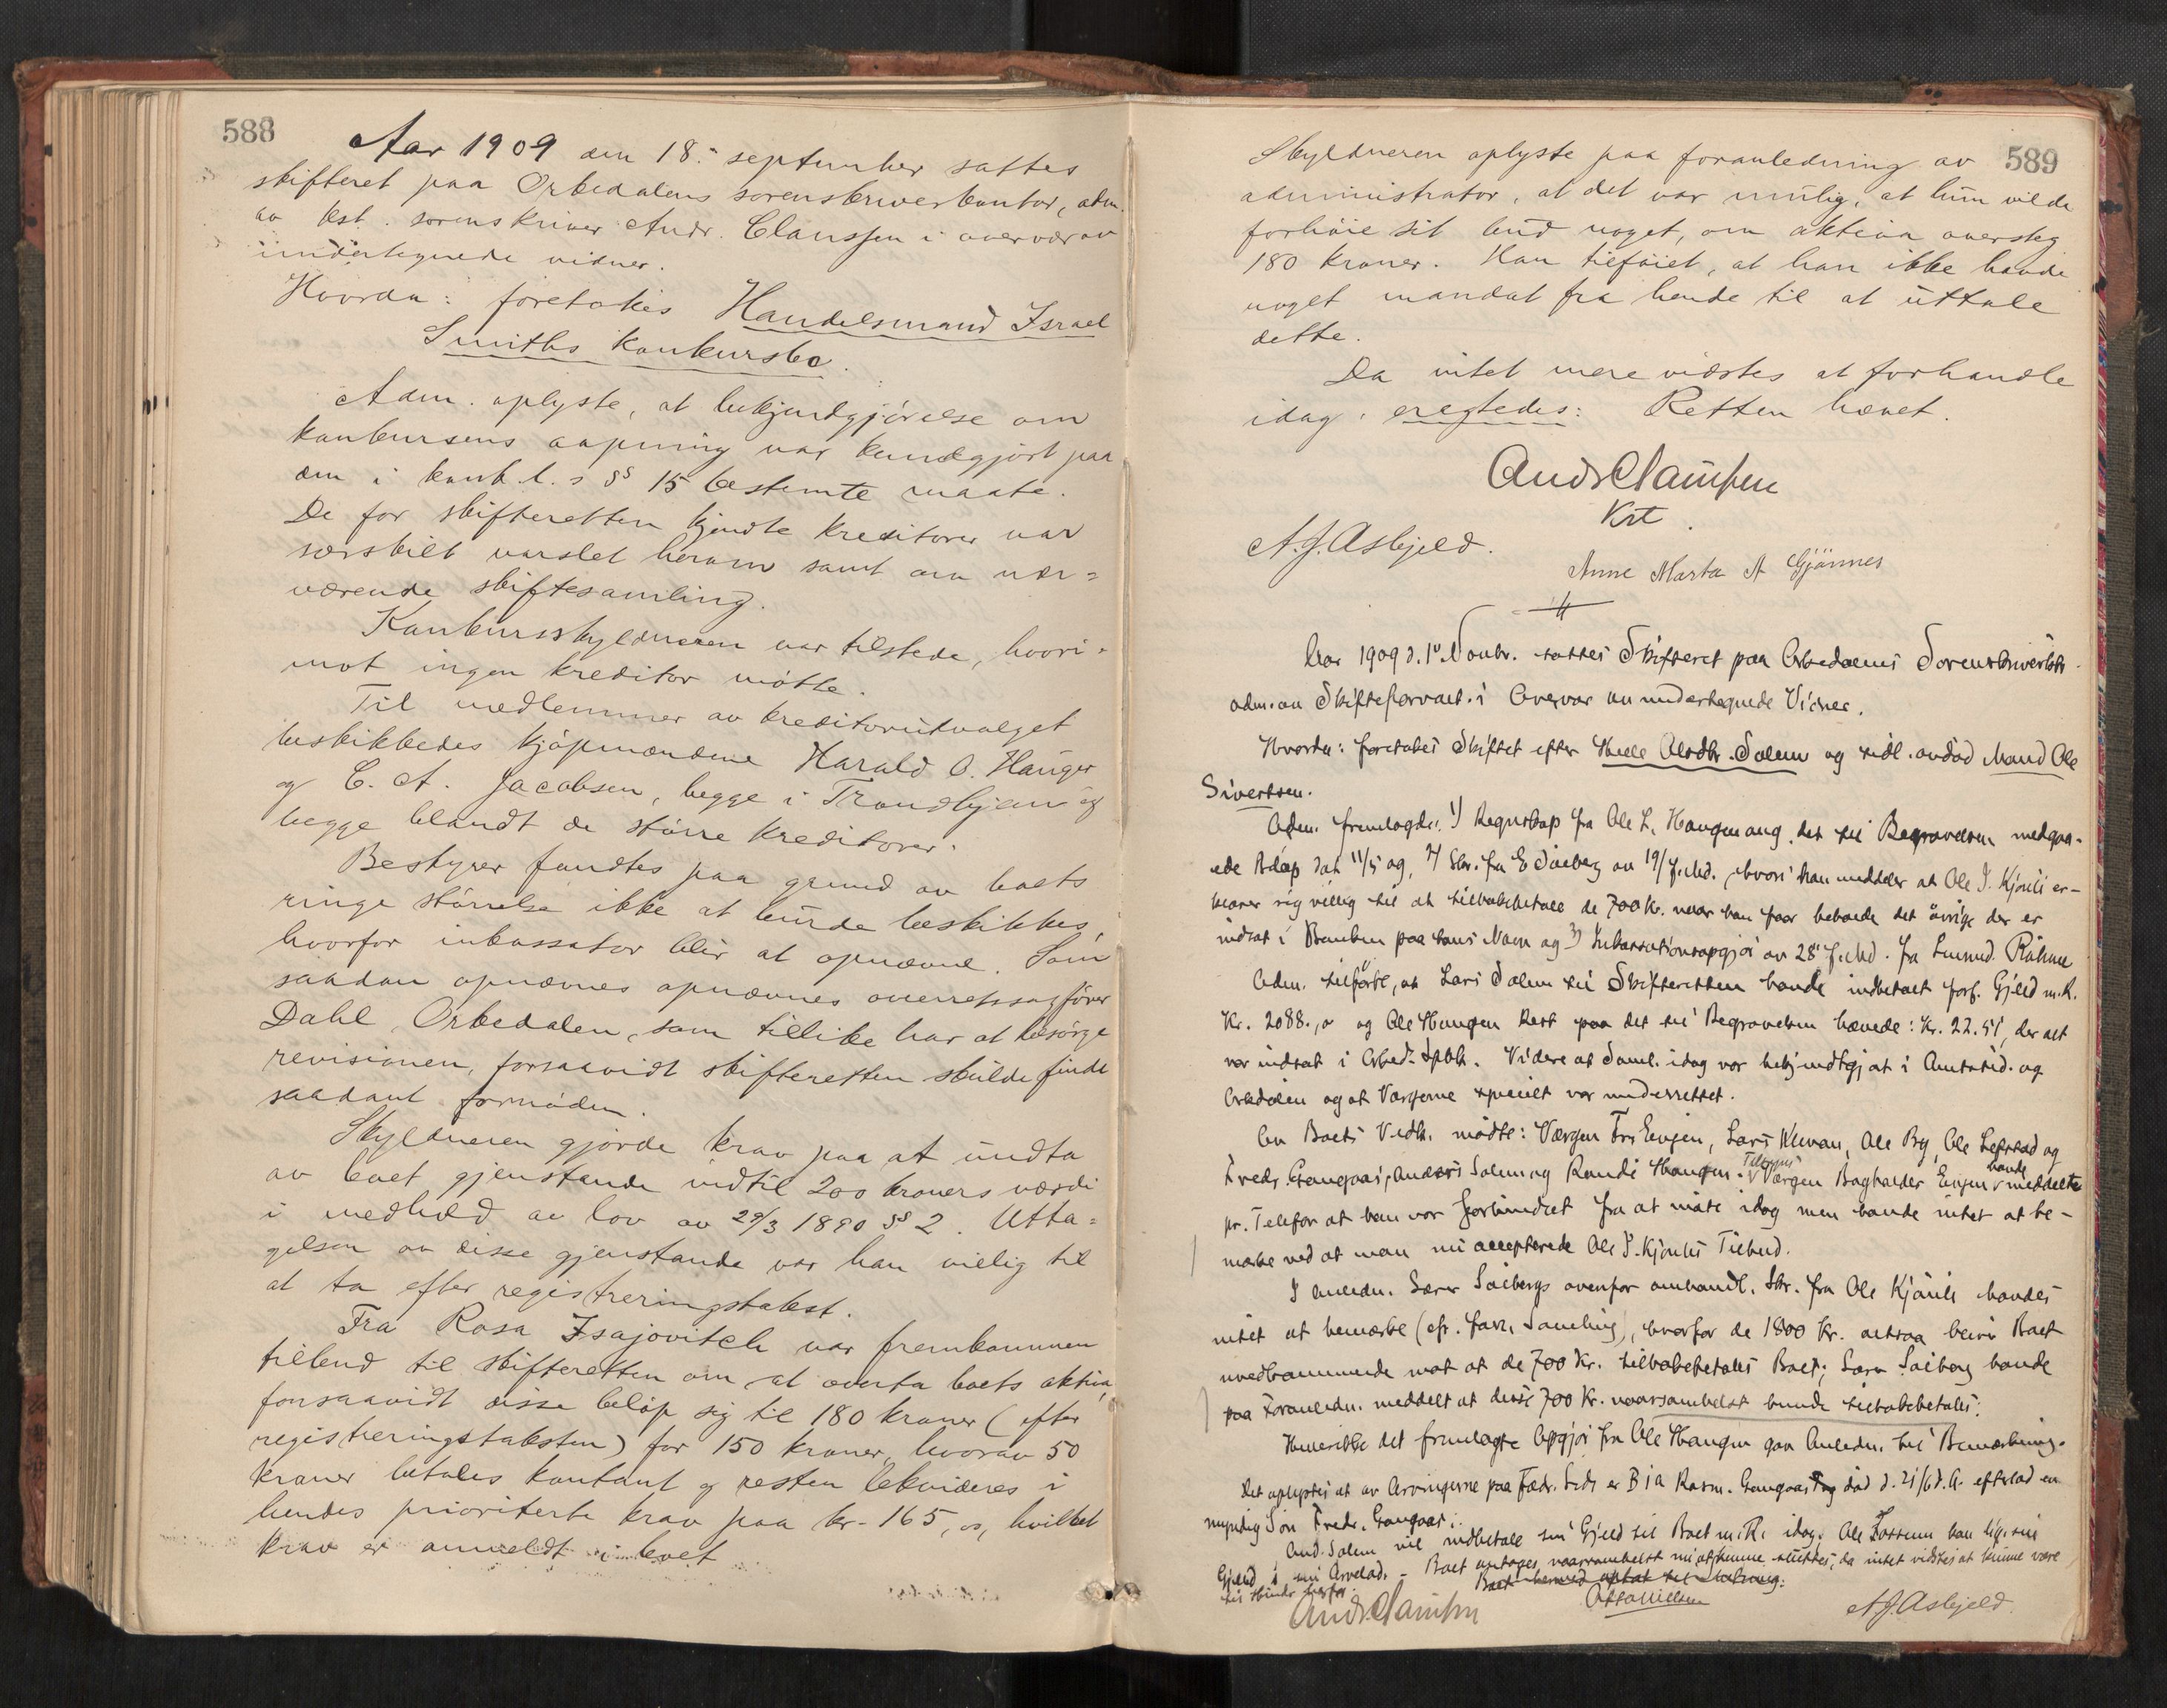 588
Aar 1909 den 18. september sattes
skifteret paa Orkedalens sorenskriverkontor, adm.
av kst. sorenskriver Andr. Claussen i overvær av
undertegnede vidner.
Hvorda: foretokes Handelsmand Israel
Smiths konkursbo.
Adm. oplyste, at bekjendtgjørelse om
konkursens aapning var kundgjort paa
den i konk.l.s §§ 15 bestemte maate.
De for skifteretten kjendte kreditorer var
særskilt varslet herom samt om nær=
værende skiftesamling.
Konkursskyldneren var tilstede, hvori-
mot ingen kreditor møtte.
Til medlemmer av kreditorutvalget
beskikkedes kjøpmændene Harald O. Hauger
og C. A. Jacobsen, begge i Trondhjem og
begge blandt de større kreditorer.
Bestyrer fandtes paa grund av boets
ringe størrelse ikke at burde beskikkes,
hvorfor inkassator blir at opnævne. Som
saadan opnævnes opnævnes overretssagfører
Dahl, Orkedalen, som tillike har at besørge
revisionen, forsaavidt skifteretten skulde finde
saadant fornøden.
Skyldneren gjorde krav paa at undta
av boet gjenstande indtil 200 kroners værdi
i medhold av lov av 29/3 1890 §§ 2. Utta=
gelsen av disse gjenstande var han villig til
at ta efter registreringstakst.
Fra Rosa Isajovitch var fremkommen
tilbud til skifteretten om at overta boets aktiva,
forsaavidt disse beløp sig til 180 kroner (efter
registreringstaksten) for 150 kroner, hvorav 50
kroner betales kontant og resten likvideres i
hendes prioriterte krav paa kr. 165, os, hvilket
krav er anmeldt i boet
589
Skyldneren oplyste paa foranledning av
administrator, at det var mulig, at hun vilde
forhøie sit bud noget, om aktiva oversteg
180 kroner. Han tilføiet, at han ikke havde
noget mandat fra hende til at uttale
dette.
Da intet mere vidstes at forhandle
idag, eragtedes: Retten hævet.
Andr Claussen
Kst.
A. J. Asbjeld.
Anne Marta A Gjønnes
Aar 1909 d. 1ste Novbr. sattes Skifteret paa Orkedalens Sorenskriverktr.
adm. av Skifteforvalt. i Overvær av undertegnede Vidner.
Hvorda: foretokes Skiftet efter Olsdtr. Solem og tidl. avdød Mand Ole
Sivertsen.
Adm. fremlagde: 1) Regnskap fra Ole L. Haugen ang. det til Begravelsen medgaa-
ede Beløp dat 11/5 og, 2) Skr. fra E av 19/ f. Md., hvori han meddeler at Ole J. Kjøuli er-
klærer sig villig til at tilbakebetale de 700 Kr. naar han faar beholde det øvrige der er
indsat i Banken paa hans Navn og 3) Inkassationsopgjør av 28de f. Md. fra Lensmd.
Adm. tilførte, at Lars Solem til Skifteretten havde indbetalt forf. Gjeld m. R.
Kr. 2088., og Ole Haugen Rest paa det til Begravelsen hævede: Kr. 22.51, der alt
var indsat i Orked. Spbk. Videre at Saml. idag var bekjendtgjort i Amtstid. og
Orkedølen og at Værgerne specielt var underrettet.
Av Boets Vedk. mødte: Værgen Frs Evjen, Lars Kuvan, Ole By, Ole og
Fredr. Gangaas, Anders Solem og Randi Haugen. Værgen Bagholder Evjen havde meddelte
pr. Telefon at han var forhindret fra at møte idag men havde intet at be-
merke ved at man nu accepterede Ole J. Kjøulis Tilbud.
I Anledn. ovenfor omhandl. Skr. fra Ole Kjøuli havdes
intet at bemærke (cfr. forr. Samling), hvorfor de 1800 Kr. altsaa blir Boet
uvedkommende mot at de 700 Kr. tilbakebetales Boet; havde
paa Foranledn. meddelt at disse 700 Kr. naarsomhelst kunde tilbakebetales.
Heller ikke det fremlagte Opgjør fra Ole Haugen gav Anledn. til Bemærkning.
Det oplystes at av Arvingerne paa Fædr. Side er B 1 a Rasm. Gangaas død d. 21/6 d. A. efterlod en
myndig Søn Fredr. Gangaas.
And. Solem vil indbetale sin Gjeld til Boet m. R. idag. Ole kan lig. sin
Gjeld i sin Arvelod. - Boet antages naarsomhelst nu at kunne sluttes, da intet vidstes at kunne være
til Hinder herfor.
Boet hermed optat til slutning.
Andr Claussen
A. J. Asbjeld.